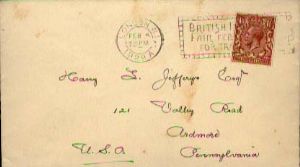 FEB
BRITISH
FAIR
FOR
Harry L. Jefferys Esqr
121 Valley Road
Ardmore
Pennsylvania
U.S.A